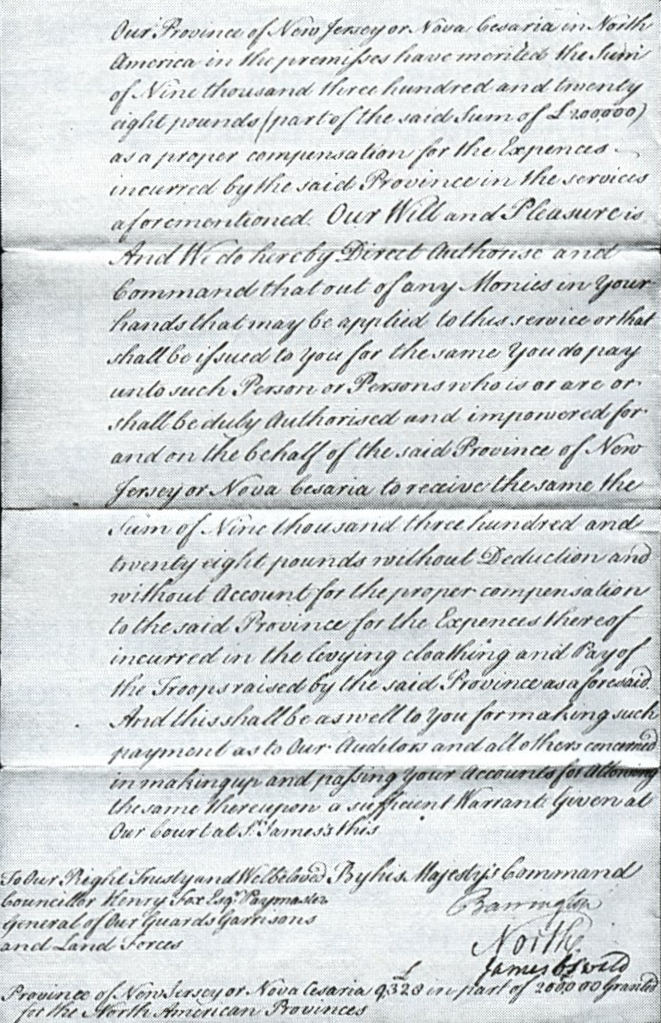 Our Province of New Jersey or Nova Cesaria in North
America in the premisses have merited the Sum
of Nine thousand three hundred and twenty
eight pounds (part of the said Sum of £200,000)
as a proper compensation for the Expences
incurred by the said Province in the services
aforementioned. Our Will and Pleasure is
And We do hereby Direct Authorise and
Command that out of any Monies in Your
hands that may be applied to this service or that
shall be issued to You for the same You do pay
unto such Person or Persons who is or are or
shall be duly Authorised and impowered for
and on the behalf of the said Province of New
Jersey or Nova Cesaria to receive the same the
Sum of Nine thousand three hundred and
twenty eight pounds without Deduction and
without Account for the proper compensation
to the said Province for the Expences thereof
incurred in the levying cloathing and Pay of
the Troops raised by the said Province as aforesaid.
And this shall be as well to You for making such
payment as to Our Auditors and all others concerned
in making up and passing Your Accounts for Allowing
the same thereupon a sufficient Warrant. Given at
Our Court at St. James's this
To Our Right Trusty and Welbeloved
Councillor Henry Fox Esqr. Paymaster
General of Our Guards Garrisons
and Land Forces
By his Majesty's Command
Barrington
North
James Oswald
Province of New Jersey or Nova Cesaria £9,328 in part of 200,000 Granted
for the North American Provinces